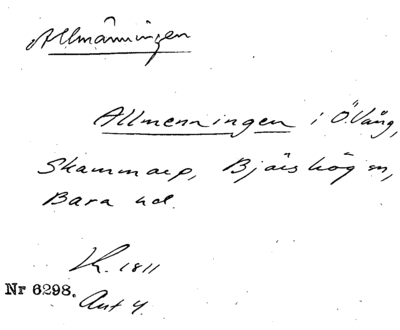 Allmänningen
Allmenningen i Ö. Vång,
Skammarp, Bjäishög sn,
Bara hd.
Lk. 1811
Nr 6298.
Akt 4.